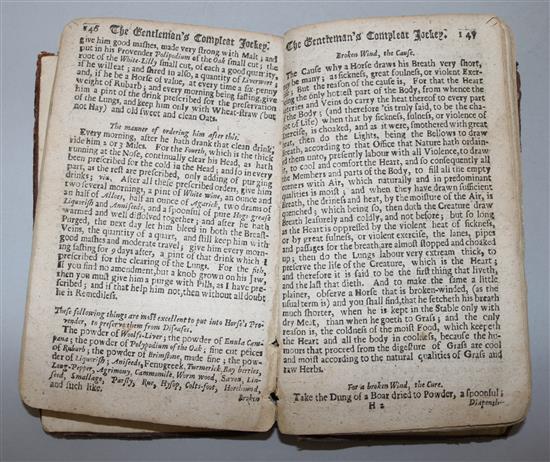 146 The Gentleman's Compleat Jockey.
give him good mashes, made very strong with Malt; and
put in his Provender Polipodium of the Oak small cut; the
root of the White-Lilly small cut, of each a good quantity,
if he will eat; and shred in also, a quantity of Liverwort;
and, if he be a Horse of value, at every time a six-penny
weight of Rubarb; and every morning being fasting, give
him a pint of the drink prescribed for the preservation
of the Lungs, and keep him only with Wheat-straw (but
not Hay) and old sweet and clean Oats.
The manner of ordering him after this.
Every morning, after he hath drank that clean drink,
ride him 2 or 3 Miles. For the fourth, which is the thick
running at the Nose, continually clear his Head, as hath
been prescribed for the cold in the Head; and so in every
part, as the rest are prescribed, only adding of purging
drinks; viz. After all these prescribed orders, give him
two several mornings, a pint of White wine, an ounce and
an half of Alloes, half an ounce of Agarick, two drams of
Liquerish and Anniseeds, and a spoonful of pure Hogs grease
warmed and well dissolved together; and after he hath
Purged, the next day let him bleed in both the Breast-
Veins, the quantity of a quart, and still keep him with
good mashes and moderate travel; give him every morn-
ing fasting for 9 days after, a pint of that drink which I
prescribed for the clearing of the Lungs. For the fifth,
if you find no amendment, but a knob grown on his Jaw,
then you must give him a purge with Pills, as I have pre-
scribed; and if that help him not, then without all doubt
he is Remediless.
These following things are most excellent to put into Horse's Pro-
vender, to preserve them from Diseases.
The powder of Woolfs-Liver; the powder of Enula Cam-
pana; the powder of Polypodium of the Oak; fine cut pieces
of Rubarb; the powder of Brimstone, made fine; the pow-
der of Liquerish; Aniseeds, Fenugreek, Turmerick, Bay berries,
Long-Pepper, Agrimony, Cammomile, Worm wood, Saven, Lin-
seed, Smallage, Parsly, Rue, Hysop, Colts-foot, Horehound,
and such like.
Broken
The Gentleman's Compleat Jockey. 147
Broken Wind, the Cause.
The Cause why a Horse draws his Breath very short,
may be many; as sickness, great foulness, or violent Exer-
cise: But the reason of the cause is, For that the Heart
being the only hottest part of the Body, from whence the
Arteries and Veins do carry the heat thereof to every part
of the Body; (and therefore 'tis truly said, to be the cha-
riot of Life) when that by sickness, fulness, or violence of
exercise, is choaked, and as it were, smothered with great
heat, then do the Lights, being the Bellows to draw
Breath, according to that Office that Nature hath ordain-
ed them unto, presently labour with all Violence, to draw
air, to cool and comfort the Heart, and so consequently all
the Members and parts of the Body, to fill all the empty
corners with Air, which naturally and in predominant
qualities is moist; and when they have drawn sufficient
Breath, the driness and heat, by the moisture of the Air, is
quenched; which being so, then doth the Creature draw
Breath leasurely and coldly, and not before; but so long
as the Heart is oppressed by the violent heat of sickness,
or by great fulness, or violent exercise, the lanes, pipes
and passages for the breath, are almost stopped and choaked
up; then do the Lungs labour very extream thick, to
preserve the life of the Creature, which is the Heart;
and therefore it is said to be the first thing that liveth,
and the last that dieth. And to make the same a little
plainer, observe a Horse that is broken-winded, (as the
usual term is) and you shall find, that he setcheth his breath
much shorter, when he is kept in the Stable only with
dry Meat, than when he goeth to Grass; and the only
reason is, the coldness of the moist Food, which keepeth
the Heart and all the body in coolness, because the hu-
mours that proceed from the digesture of Grass are cool
and moist according to the natural qualities of Grass and
raw Herbs.
For a broken Wind, the Cure.
Take the Dung of a Boar dried to Powder, a spoonful;
H 2